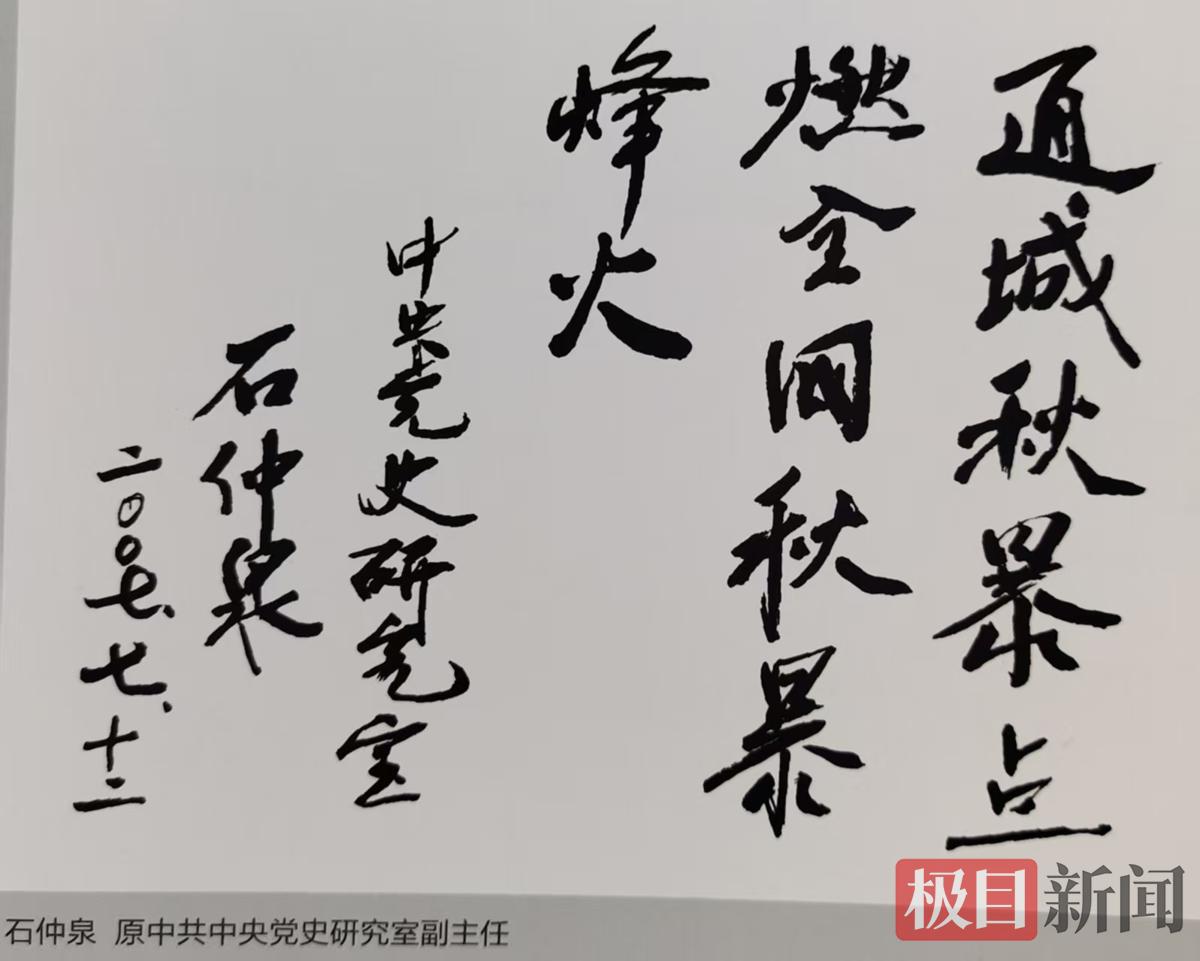 通城秋暴点
燃全国秋暴
烽火
中共党史研究室
石仲泉
二〇〇七、七、十二
石仲泉 原中共中央党史研究室副主任
极目新闻